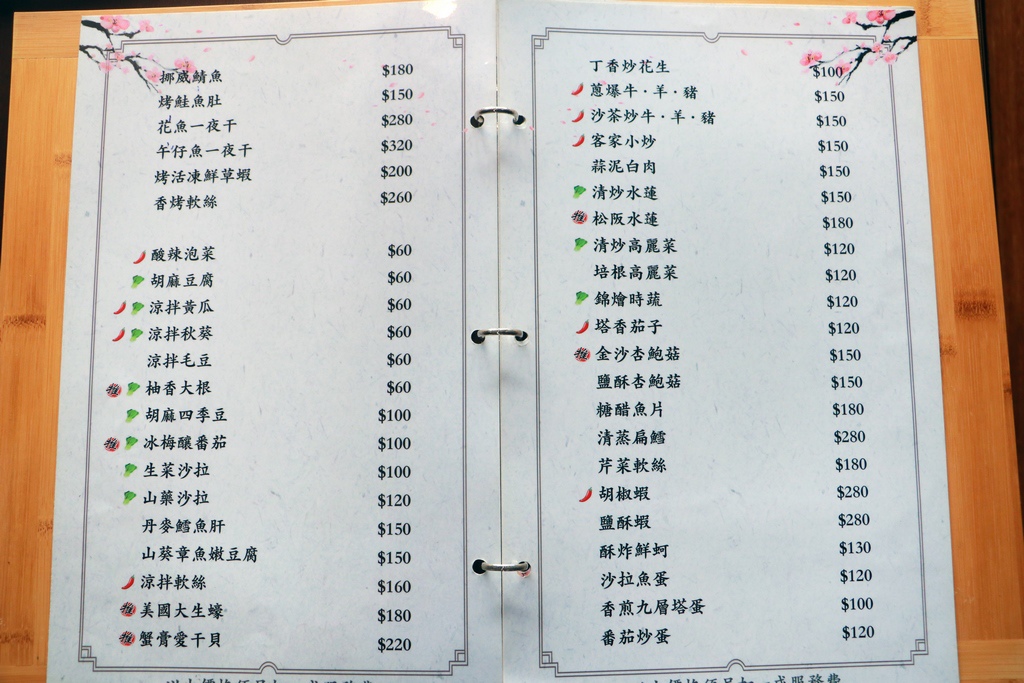 挪威鯖魚 $180
烤鮭魚肚 $150
花魚一夜干 $280
午仔魚一夜干 $320
烤活凍鮮草蝦 $200
香烤軟絲 $260
酸辣泡菜 $60
胡麻豆腐 $60
涼拌黃瓜 $60
涼拌秋葵 $60
涼拌毛豆 $60
推 柚香大根 $60
胡麻四季豆 $100
推 冰梅釀番茄 $100
生菜沙拉 $100
山藥沙拉 $120
丹麥鱈魚肝 $150
山葵章魚嫩豆腐 $150
涼拌軟絲 $160
推 美國大生蠔 $180
推 蟹膏愛干貝 $220
丁香炒花生 $100
蔥爆牛·羊·豬 $150
沙茶炒牛·羊·豬 $150
客家小炒 $150
蒜泥白肉 $150
清炒水蓮 $150
推 松阪水蓮 $180
清炒高麗菜 $120
培根高麗菜 $120
錦燴時蔬 $120
塔香茄子 $120
推 金沙杏鮑菇 $150
鹽酥杏鮑菇 $150
糖醋魚片 $180
清蒸扁鱈 $280
芹菜軟絲 $180
胡椒蝦 $280
鹽酥蝦 $280
酥炸鮮蚵 $130
沙拉魚蛋 $120
香煎九層塔蛋 $100
番茄炒蛋 $120